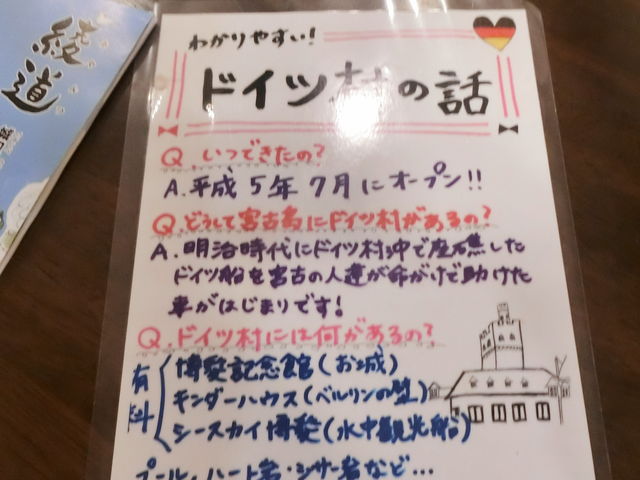 綾道
わかりやすい!
ドイツ村の話
Q.いつできたの?
A.平成5年7月にオープン!!
Q.どうして宮古島にドイツ村があるの?
A.明治時代にドイツ村沖で座礁した
ドイツ船を宮古の人達が命がけで助けた
事がはじまりです!
Q.ドイツ村には何があるの?
有料
博愛記念館(お城)
キンダーハウス(ベルリンの壁)
シースカイ博愛(水中観光船)
プール、ハート岩・シーサー岩など…